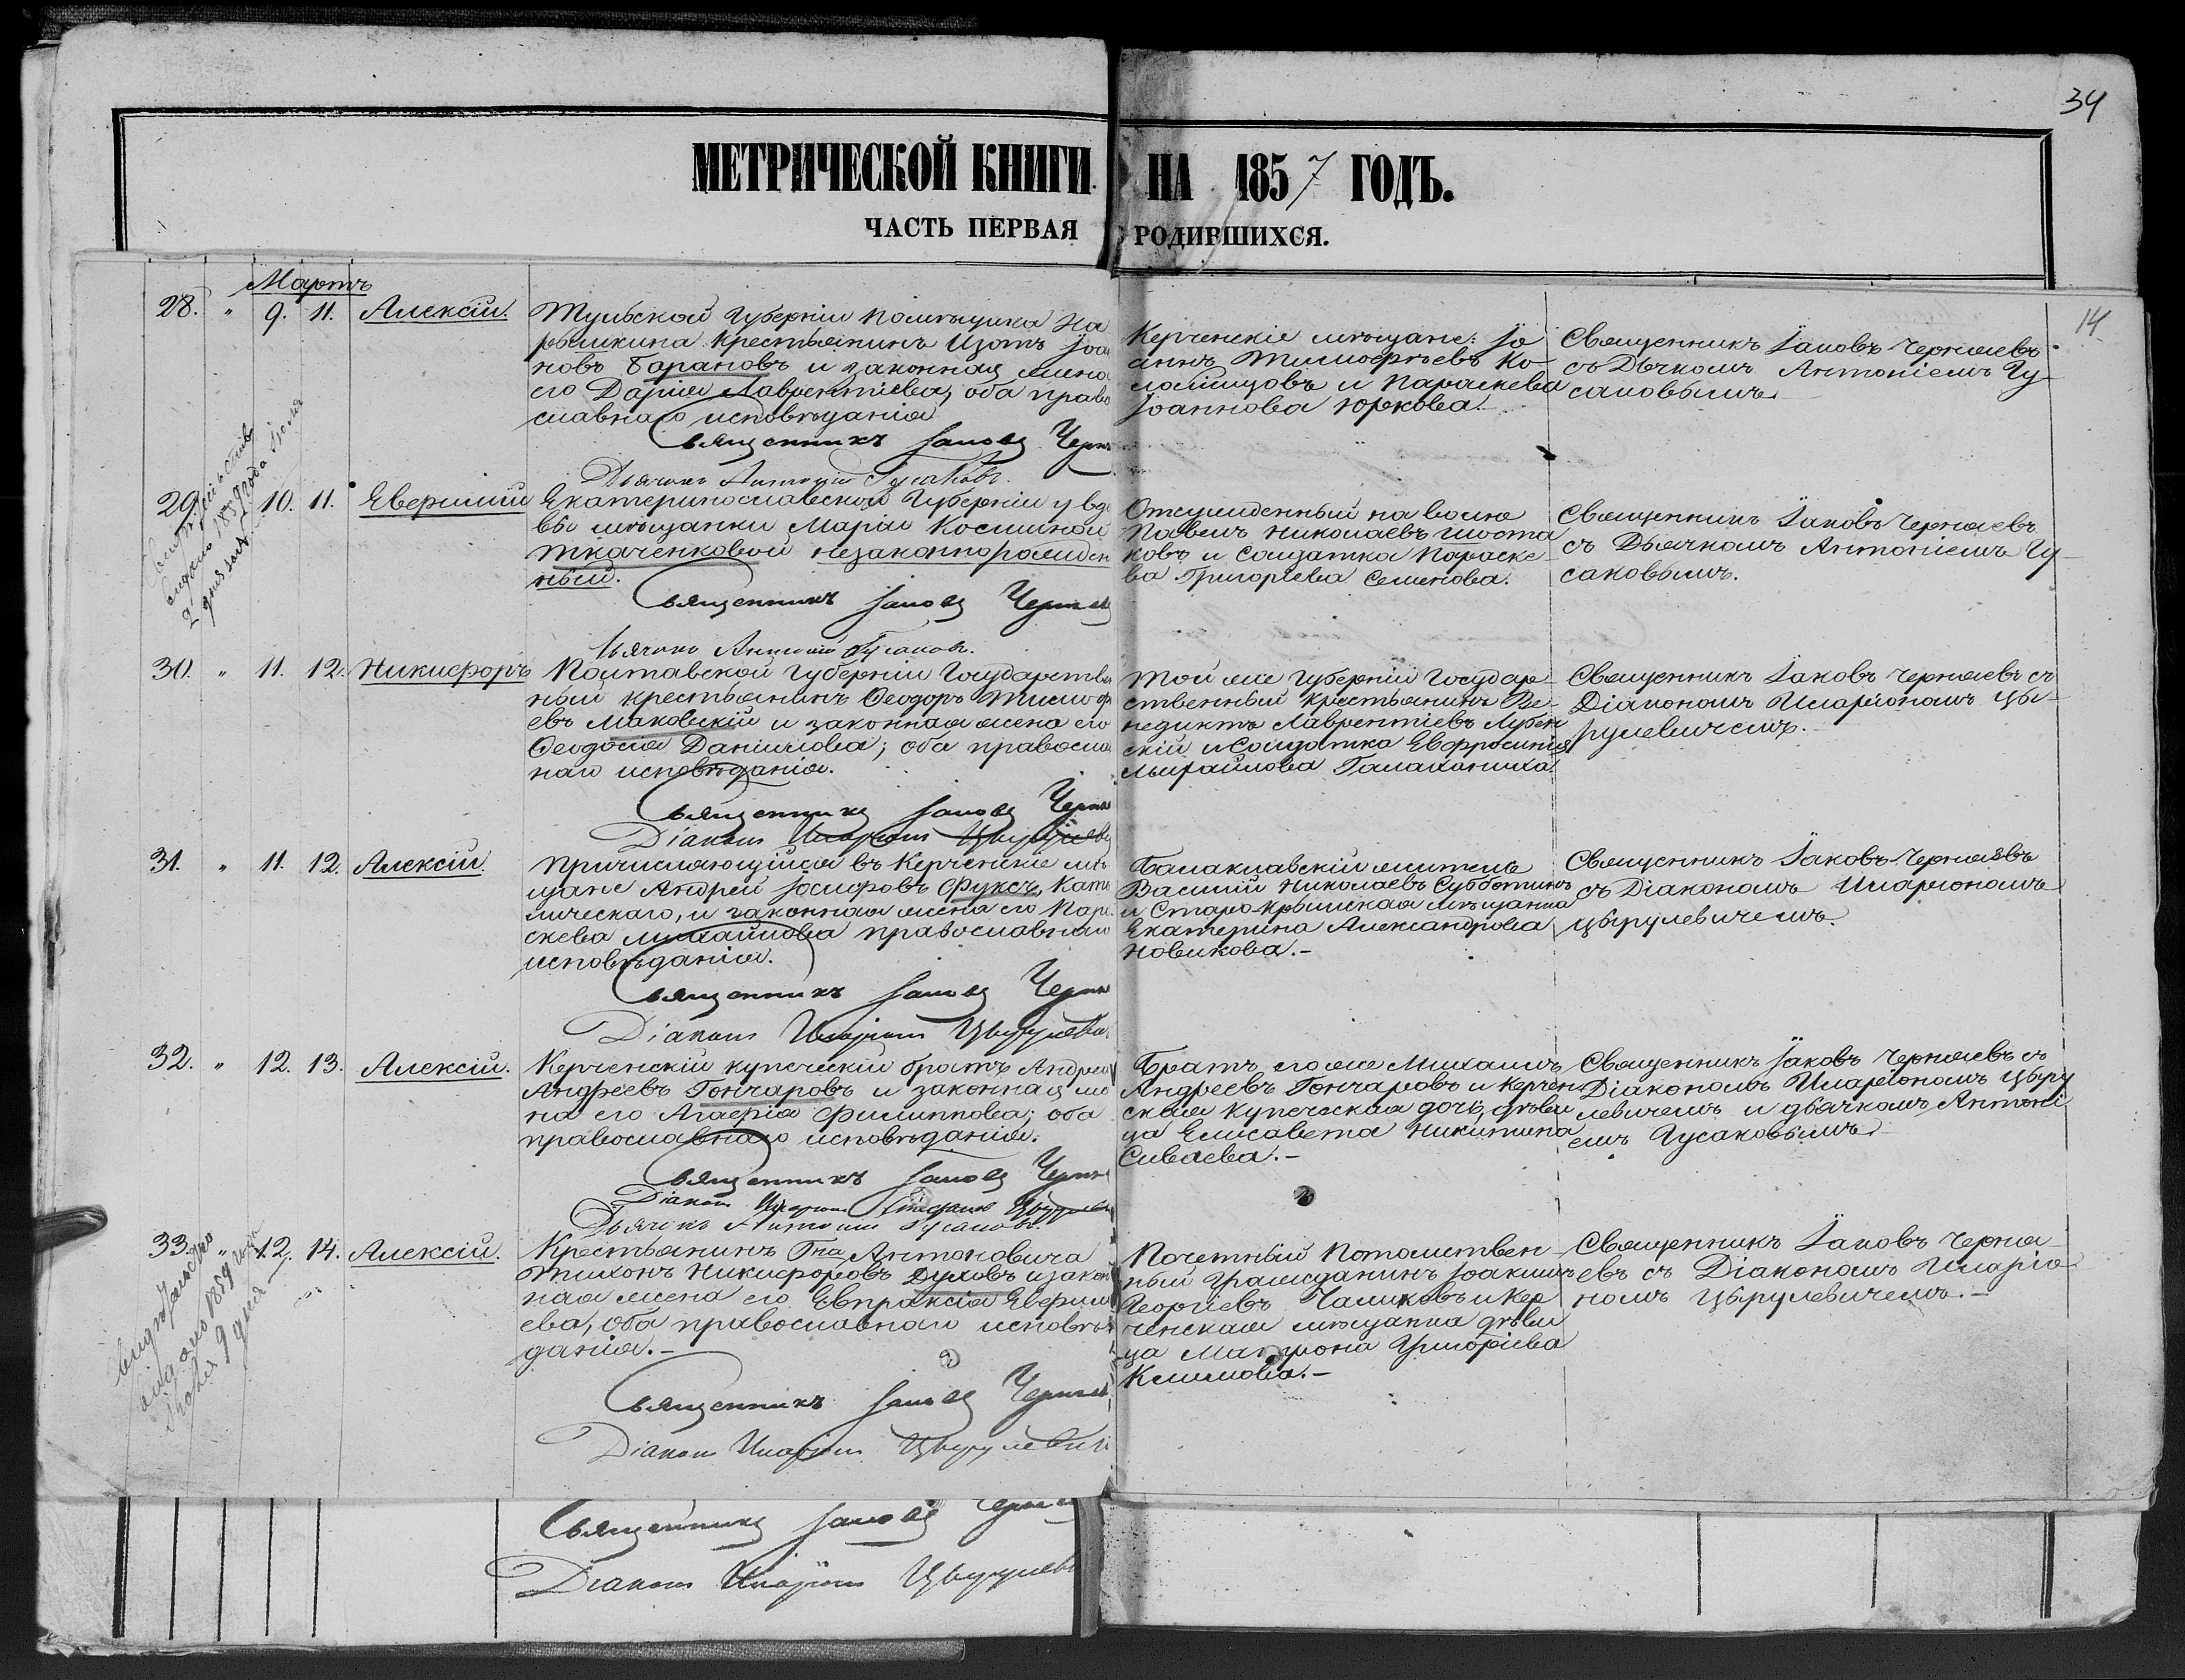 34
МЕТРИЧЕСКОЙ КНИГИ НА 1857 ГОДЪ.
ЧАСТЬ ПЕРВАЯ РОДИВШИХСЯ.
14
Мартъ
28. " 9. 11. Алексій.
Тульской Губерніи помѣщика На
рышкина крестьянинъ Изотъ Іоа
новъ Барановъ и законная жена
его Дарія Лаврентіева, оба право
славнаго исповѣданія
Священникъ Іаковъ Черня
Дьячокъ Антоній Гусаковъ.
Керченскіе мѣщане: Іо
аннъ Тимофѣевъ Ко-
ломійцовъ и Параскева
Іоаннова Юркова.
Священникъ Іаковъ Черняевъ
съ Дьячкомъ Антоніемъ Гу-
саковымъ.
29. " 10. 11. Евфимій
1859 года Іюля
2 дня
Екатеринославской Губерніи у вдо
вы мѣщанки Маріи Косминой
Ткаченковой незаконнорожден
ный.
Священникъ Іаковъ Черняев
Дьячокъ Антоній Гусаковъ.
Отсужденный на волю
Павелъ Николаевъ Шоста
ковъ и Солдатка Параске-
ва Григорьева Семенова.
Священникъ Іаковъ Черняевъ
съ Дьячкомъ Антоніемъ Гу-
саковымъ.
30. " 11. 12. Никифоръ
Полтавской Губерніи Государствен
ный крестьянинъ Феодоръ Тимоф
евъ Маковскій и законная жена его
Феодосія Даніилова; оба правосла
наго исповѣданія.
Священникъ Іаковъ Черня
Діаконъ Иларіонъ Цырулев
Той же Губерніи Государ-
ственный крестьянинъ Ве-
недиктъ Лаврентіевъ Лубен
скій и Солдатка Евфросинія
Михайлова Галахониха.
Священникъ Іаковъ Черняевъ съ
Діакономъ Иларіономъ Цы-
рулевичемъ.
31. " 11. 12. Алексій.
Причисляющійся въ Керченскіе мѣ
щане Андрей Іосифовъ Фуксъ, Като
лическаго, и законная жена его Пара
скева Михайлова православнаго
исповѣданія.
Священникъ Іаковъ Черня
Діаконъ Иларіонъ Цырулеви
Балаклавскій житель
Василій Николаевъ Субботинъ
и Старо-Крымская мѣщанка
Екатерина Александрова
Новикова.-
Священникъ Іаковъ Черняевъ
съ Діакономъ Иларіономъ
Цырулевичемъ.
32. " 12. 13. Алексій.
Керченскій купеческій братъ Андрей
Андреевъ Гончаровъ и законная же
на его Агаѳія Филиппова; оба
православнаго исповѣданія.
Священникъ Іаковъ Черня
Діаконъ Иларіонъ Цырулеви
Дьячокъ Антоній Гусаковъ.
Братъ его же Михаилъ
Андреевъ Гончаровъ и Керчен
ская купеческая дочь, дѣви
ца Елисавета Никитина
Сиваева.-
Священникъ Іаковъ Черняевъ съ
Діакономъ Иларіономъ Цыру
левичемъ и дьячкомъ Антоні
емъ Гусаковымъ.
33. " 12. 14. Алексій.
1859 года
Іюля 9 дня
Крестьянинъ Гна Антоновича
Тихонъ Никифоровъ Духовъ и закон
ная жена его Евпраксія Евфимі
ева, оба православнаго исповѣ
данія.-
Священникъ Іаковъ Черняев
Діаконъ Иларіонъ Цырулевичъ
Почетный Потомствен-
ный Гражданинъ Іоакимъ
Георгіевъ Чаликовъ и Кер
ченская мѣщанка дѣви
ца Матрона Григорьева
Климова.-
Священникъ Іаковъ Черня-
евъ съ Діакономъ Иларіо-
номъ Цырулевичемъ.-
Священникъ Іаковъ Черняе
Діаконъ Иларіонъ Цырулев